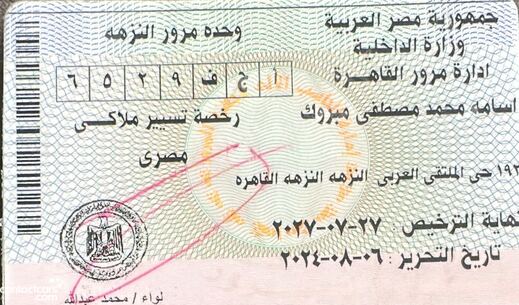 جمهورية مصر العربية
وحده مرور النزهه
وزارة الداخلية
ادارة مرور القاهرة
أ ج ف ٩ ٢ ٥ ٦
اسامه محمد مصطفى مبروك
رخصة تسيير ملاكى
مصرى
١٩٢ حى الملتقى العربى النزهه النزهه القاهره
نهاية الترخيص : ٢٧-٠٧-٢٠٢٧
تاريخ التحرير : ٠٦-٠٨-٢٠٢٤
لواء / محمد عبدالله